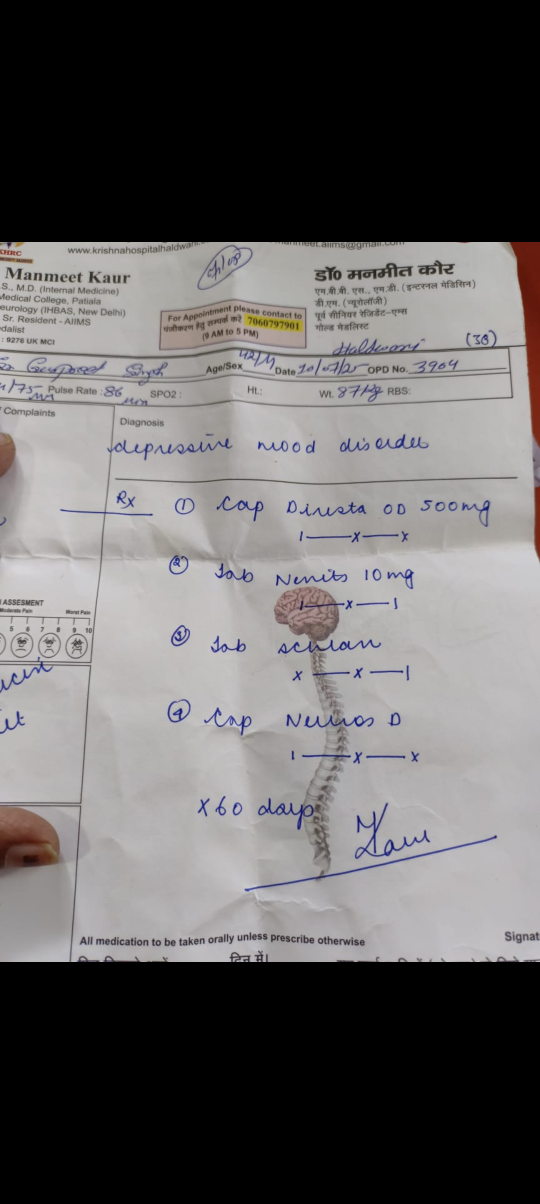 HHRC
www.krishnahospitalhaldwani
manmeet.aiims@gmail.com
Manmeet Kaur
S., M.D. (Internal Medicine)
Medical College, Patiala
eurology (IHBAS, New Delhi)
Sr. Resident - AIIMS
edalist
: 9276 UK MCI
For Appointment please contact to
पंजीकरण हेतु सम्पर्क करें 7060797901
(9 AM to 5 PM)
डॉ० मनमीत कौर
एम.बी.बी. एस., एम.डी. (इन्टरनल मेडिसिन)
डी.एम. (न्यूरोलॉजी)
पूर्व सीनियर रेजिडेंट-एम्स
गोल्ड मेडलिस्ट
Haldwani (38)
Singh Age/Sex 42/M Date 10/07/25 OPD No. 3964
/75 Pulse Rate : 86 SPO2 : Ht.: Wt. 87kg RBS:
Complaints
Diagnosis
depressive mood disorder
Rx ① Cap Divesta OD 500mg
1 — x — x
② Tab 10mg
1 — x — 1
③ Tab
x — x — 1
④ Cap D
1 — x — x
x 60 days
ASSESMENT
Moderate Pain Worst Pain
5 6 7 8 9 10
All medication to be taken orally unless prescribe otherwise
Signat
दिन में।